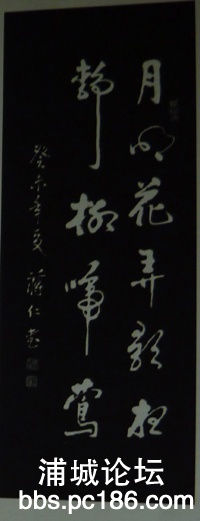 月明花弄影夜
静柳啼莺
癸未年夏 蒋仁
浦城论坛
bbs.pc186.com